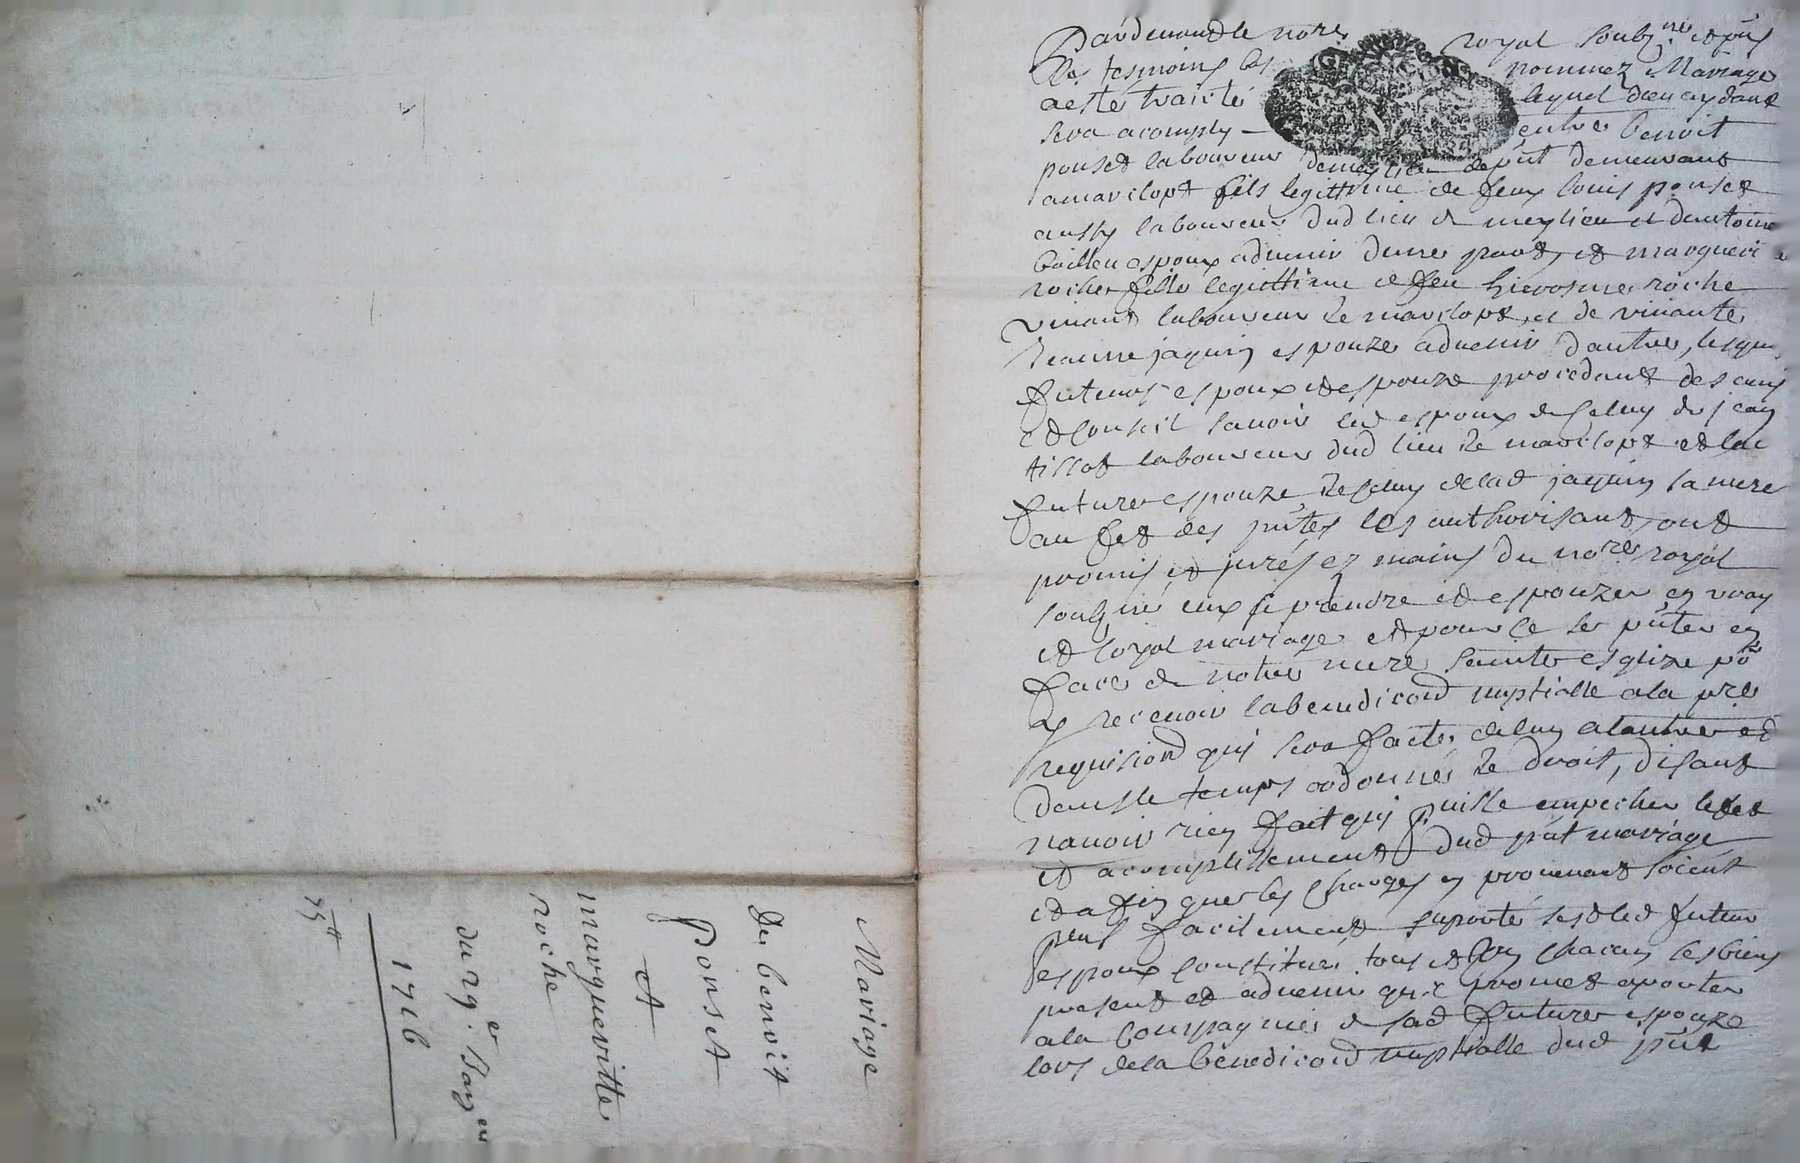 Pardevant le nore royal soubz.né et puis
les tesmoins bas nommez Mariage
a esté traitté lequel dieu aydant
sera acomply entre benoit
ponset laboureur de meylieu demeurant
a marclopt fils legittime de feux louis ponset
aussy laboureur dud lieu de meylieu et dantoinne
espoux advenir dune part, et marguerite
roche fille legittime de feu hierosme roche
vivant laboureur de marclopt et de vivante
jeanne jaquin espouze advenir dautre, lesquels
futeurs espoux et espouze procedant des avis
et conseil savoir led espoux de celuy de jean
tissot laboureur dud lieu de marclopt et lad
future espouze de celuy de lad jaquin sa mere
au fet des pntes les authorisant ont
promis et jurés es mains du nore royal
soubz.né eux se prendre et espouzer en vray
et loyal mariage et pour ce se pnter en
face de notre mere sainte esglize po.r
y recevoir la benediction nuptialle a la pre
requision quy sera faite de lun a lautre et
dans le temps ordonné de droit, disant
navoir rien fait quy puisse empecher leffet
et acomplissement dud pnt mariage
et affin que les charges en provenant soient
plus facilement suporté sest led futeur
espoux constitué tous et un chacun ses biens
present et advenir quil promet aporter
a la compagnie de sad future espouze
lors de la benediction nuptialle dud pnt
Mariage
de benoit
Ponset
et
margueritte
roche
du 29.e Janv.er
1716
GENERAL